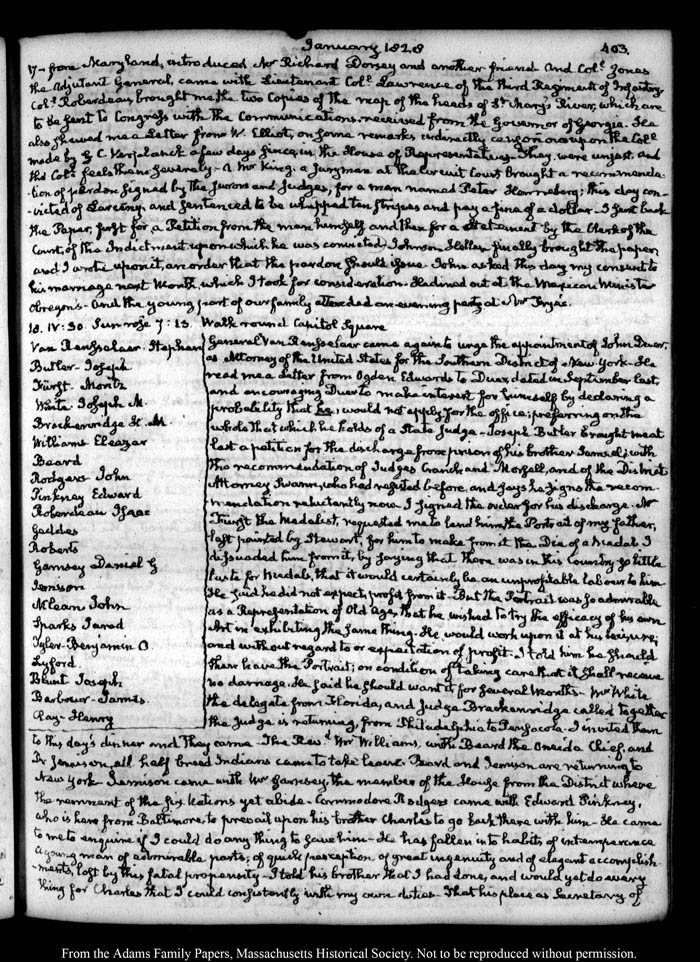 January 1828
403.
17 - from Maryland, introduced Mr Richard Dorsey and another friend. And Coll. Jones
the Adjutant General, came with Lieutenant Coll. Lawrence of the third Regiment of Infantry
Coll. Roberdeau, brought me the two Copies of the map of the heads of St Mary's River, which are
to be sent to Congress with the Communications received from the Governor of Georgia. He
also shewed me a Letter from W. Elliot, on some remarks indirectly censorious upon the Coll.
made by G. C. Verplanck a few days since, in the House of Representatives. They were unjust and
the Coll. feels them severely - A Mr King, a Juryman at the Circuit Court brought a recommenda-
tion of pardon signed by the Jurors and Judges, for a man named Peter this day con-
victed of Larceny and sentenced to be whipped ten stripes and pay a fine of a dollar - I sent back
the Paper, first for a Petition from the man himself and then for a Statement by the Clerk of the
Court, of the Indictment upon which he was convicted. Johnson Hellen finally brought the paper,
and I wrote upon it, an order that the pardon should issue. John asked this day my consent to
his marriage next Month, which I took for consideration. I dined out at the Mexican Minister
Obregon's - And the young part of our family attended an evening party at Mr Frye's.
18. IV:30. Sun rose 7:13. Walk round Capitol Square
Van Rensselaer - Stephen
Butler - Joseph
Fürst - Moritz
White Joseph M.
Brackenridge H. M.
Williams Eleazar
Beard
Rodgers - John
Pinkney Edward
Roberdeau Isaac
Geddes
Roberts
Garnsey Daniel G
Jemison
McLean John
Sparks Jared
Tyler - Benjamin O
Lyford
Blunt Joseph
Barbour - James
Clay - Henry
General Van Rensselaer came again to urge the appointment of John Duer,
as Attorney of the United States for the Southern District of New-York - He
read me a Letter from Ogden Edwards to Duer, dated in September last,
and encouraging Duer to make interest for himself by declaring a
probability that he, would not apply for the office; preferring on the
whole that which he holds of a State Judge - Joseph Butler brought me at
last a petition for the discharge from prison of his brother Samuel; with
the recommendation of Judges Cranch, and Morsell, and of the District
Attorney Swann, who had refused before, and says he signs the recom-
mendation reluctantly now. I signed the order for his discharge. Mr
Fürst the Medalist, requested me to lend him the Portrait of my father,
last painted by Stewart, for him to make from it the Die of a Medal. I
dissuaded him from it, by saying that there was in this Country so little
taste for Medals, that it would certainly be an unprofitable labour to him
He said he did not expect profit from it - But the Portrait was so admirable
as a Representation of Old Age, that he wished to try the efficacy of his own
Art in exhibiting the same thing. He would work upon it at his leisure;
and without regard to or expectation of profit. I told him he should
then have the Portrait; on condition of taking care that it shall receive
no damage. He said he should want it for several Months - Mr White
the delegate from Florida, and Judge Brackenridge called together
the Judge is returning, from Philadelphia to Pensacola. I invited them
to this day's dinner and they came - The Revd. Mr Williams, with Beard the Oneida Chief, and
Dr Jemison, all half breed Indians came to take leave. Beard and Jemison are returning to
New York - Jemison came with Mr Garnsey, the member of the House from the District where
the remnant of the six Nations yet abide - Commodore Rodgers came with Edward Pinkney,
who is here from Baltimore, to prevail upon his brother Charles to go back there with him - He came
to me to enquire if I could do any thing to save him - He has fallen into habits of intemperance
A young man of admirable parts; of quick perception, of great ingenuity and of elegant accomplish-
-ments, lost by this fatal propensity - I told his brother that I had done, and would yet do every
thing for Charles that I could consistently with my own duties - That his place as Secretary of
From the Adams Family Papers, Massachusetts Historical Society. Not to be reproduced without permission.